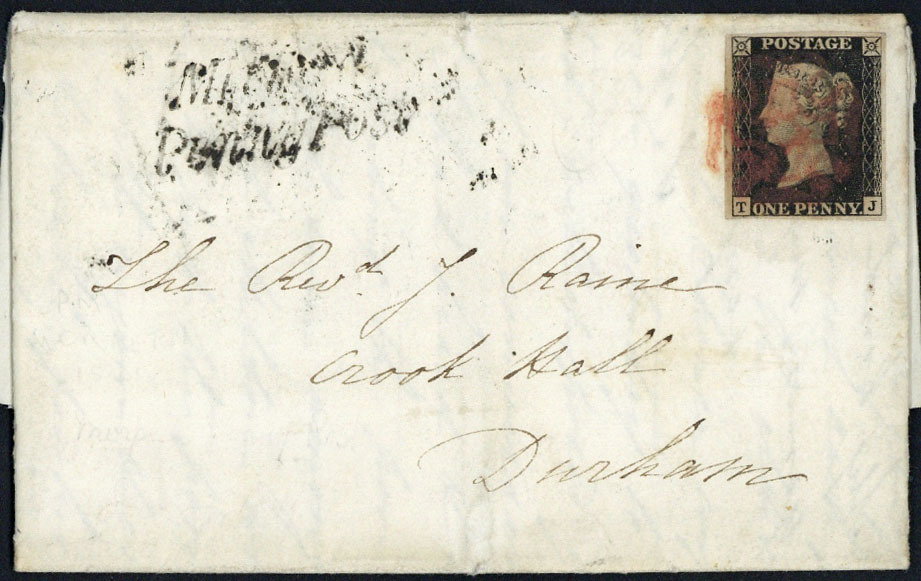 PENNY POST
POSTAGE
T ONE PENNY. J
The Revd. J. Raine
Crook Hall
Durham